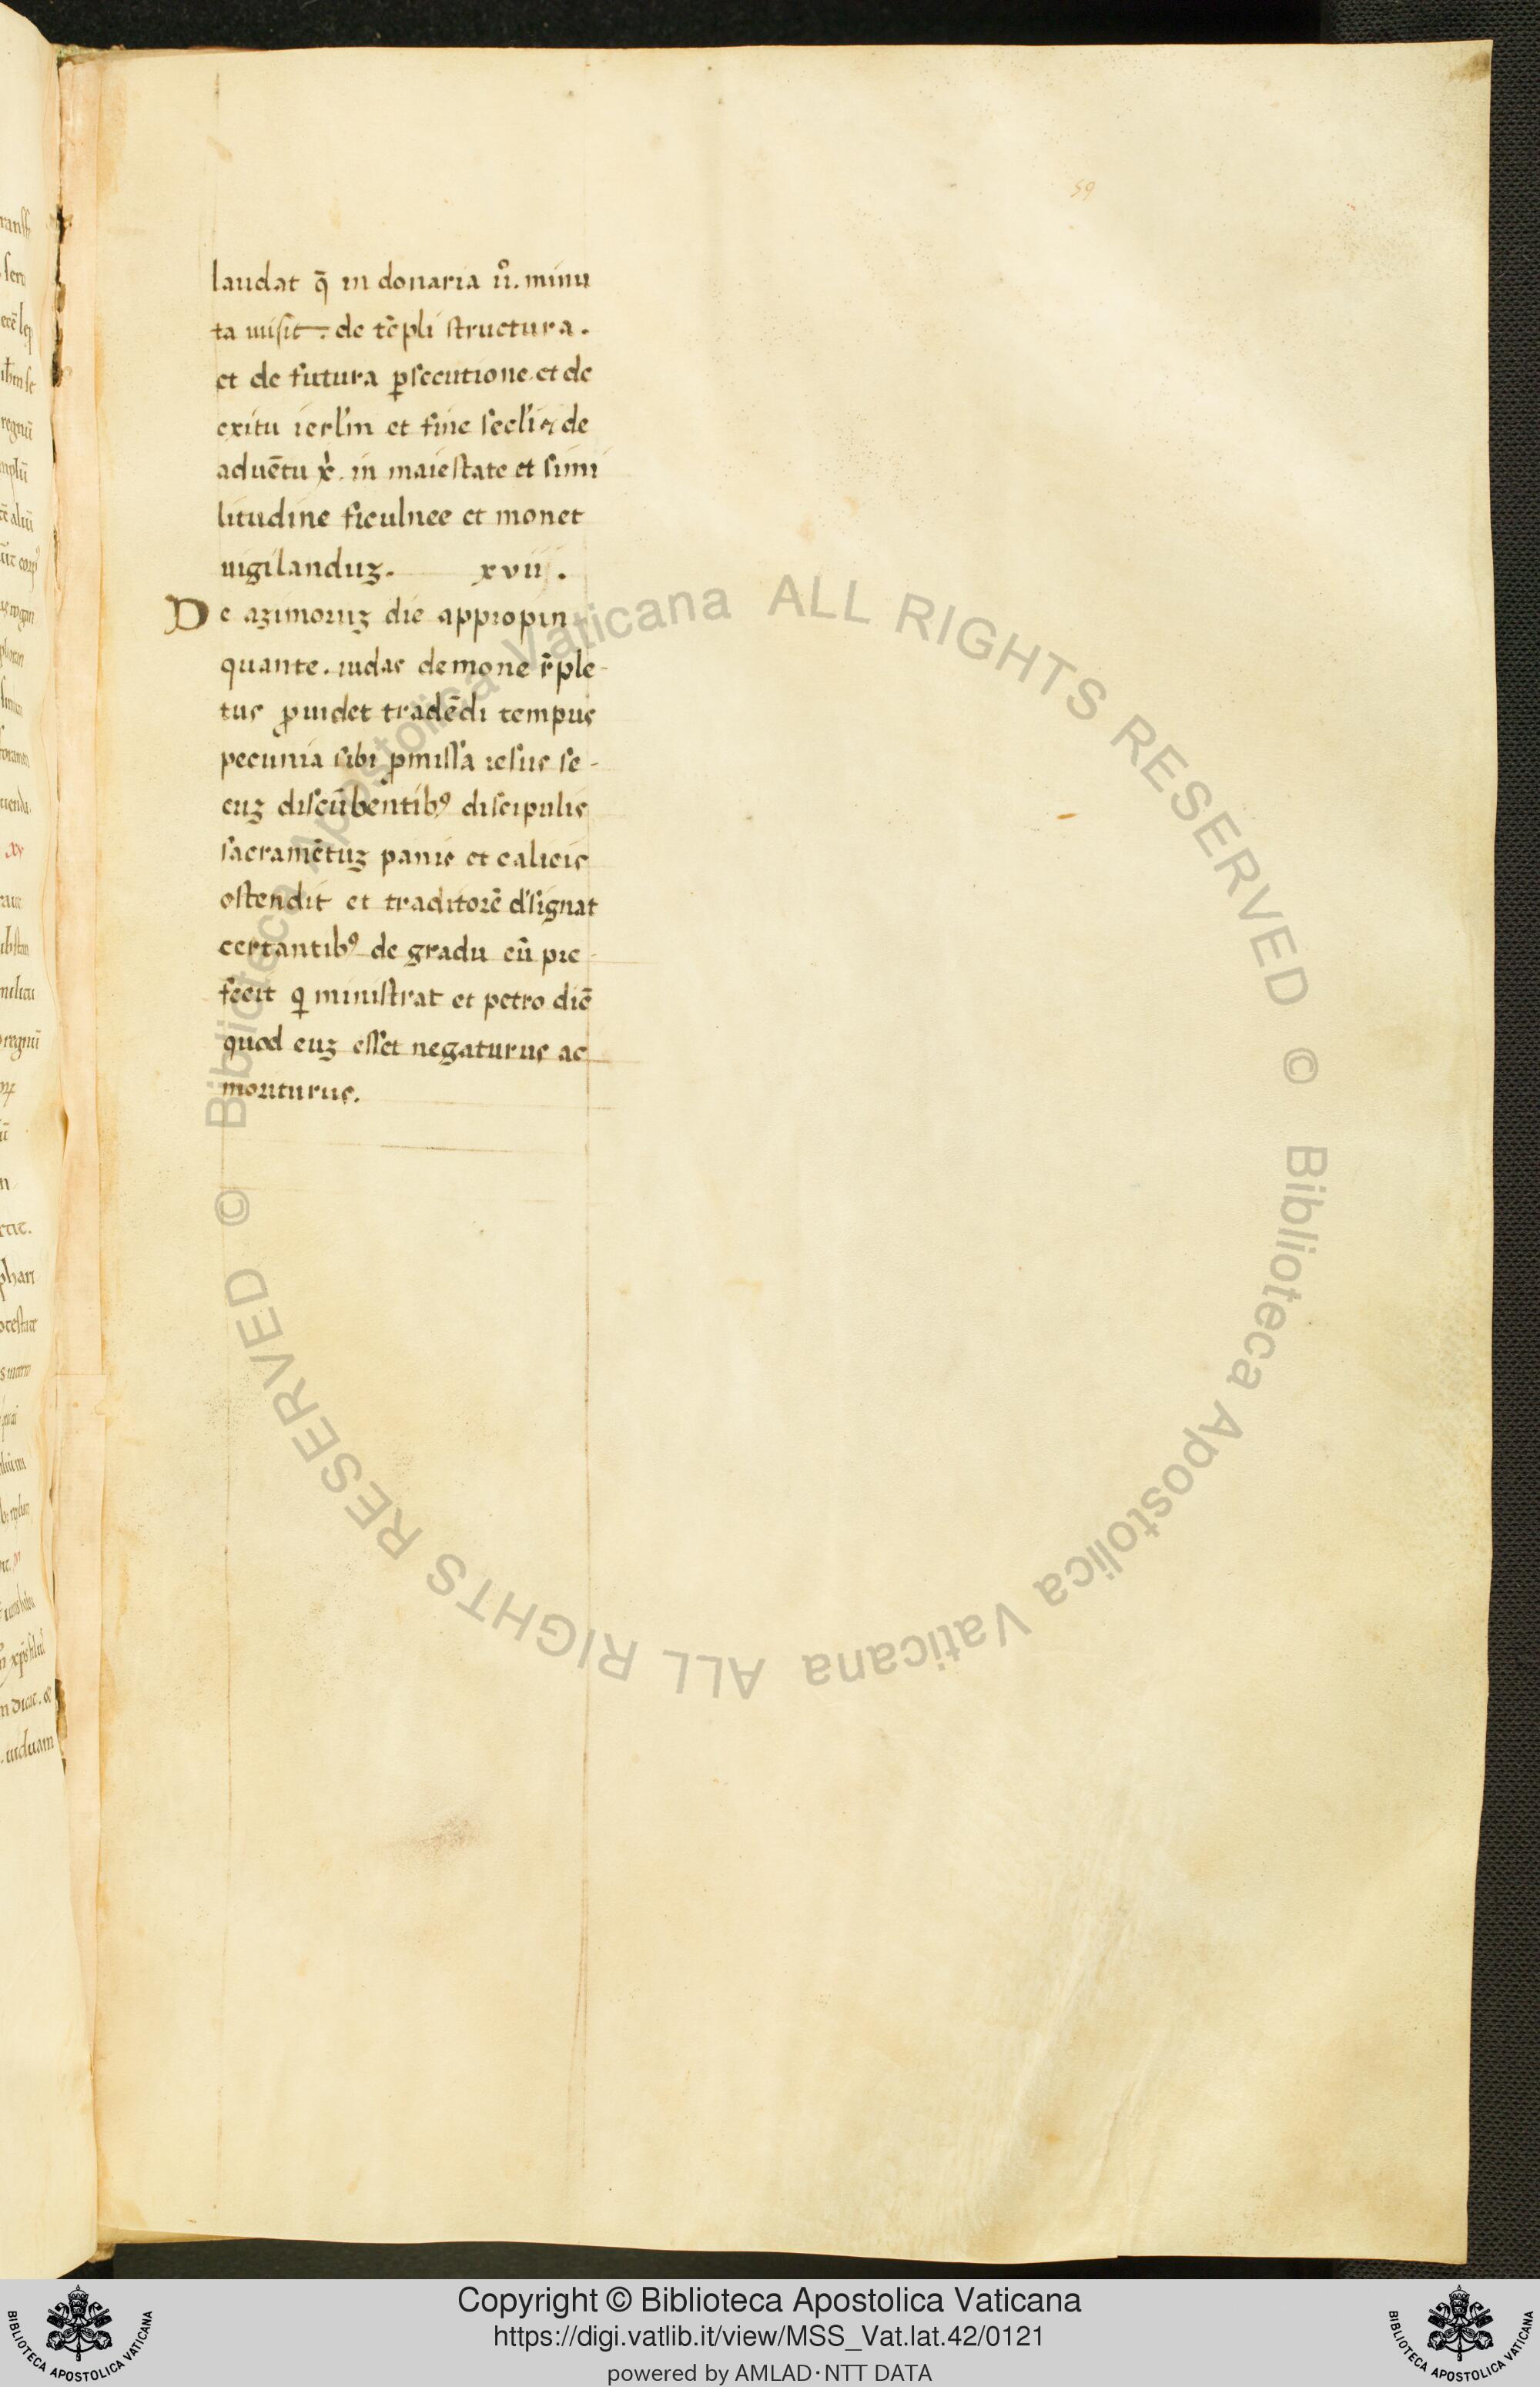 59
laudat q̄ in donaria ıı͛. minu
ta misit. de tēpli structura.
et de futura ꝑsecutione. et de
exitu ierl'm et fine secl'i & de
aduētu xp̄i. in maiestate et simi
litudine ficulnee et monet
uigilanduꝫ. xvii.
De aꝫimoruꝫ die appropin
quante. iudas demone r̄ple-
tus ꝓuidet tradēdi tempus
pecunia sibi ꝓmissa iesus se-
cuꝫ discūbentibꝰ discipulis
sacramētuꝫ panis et calicis
ostendit et traditorē d'signat
certantibꝰ de gradu eū pre
fecit qi ministrat et petro diē
quod euꝫ esset negaturus ac
moriturus.
Biblioteca Apostolica Vaticana ALL RIGHTS RESERVED ©
Biblioteca Apostolica Vaticana ALL RIGHTS RESERVED ©
Copyright © Biblioteca Apostolica Vaticana
https://digi.vatlib.it/view/MSS_Vat.lat.42/0121
powered by AMLAD·NTT DATA
BIBLIOTECA APOSTOLICA VATICANA
BIBLIOTECA APOSTOLICA VATICANA